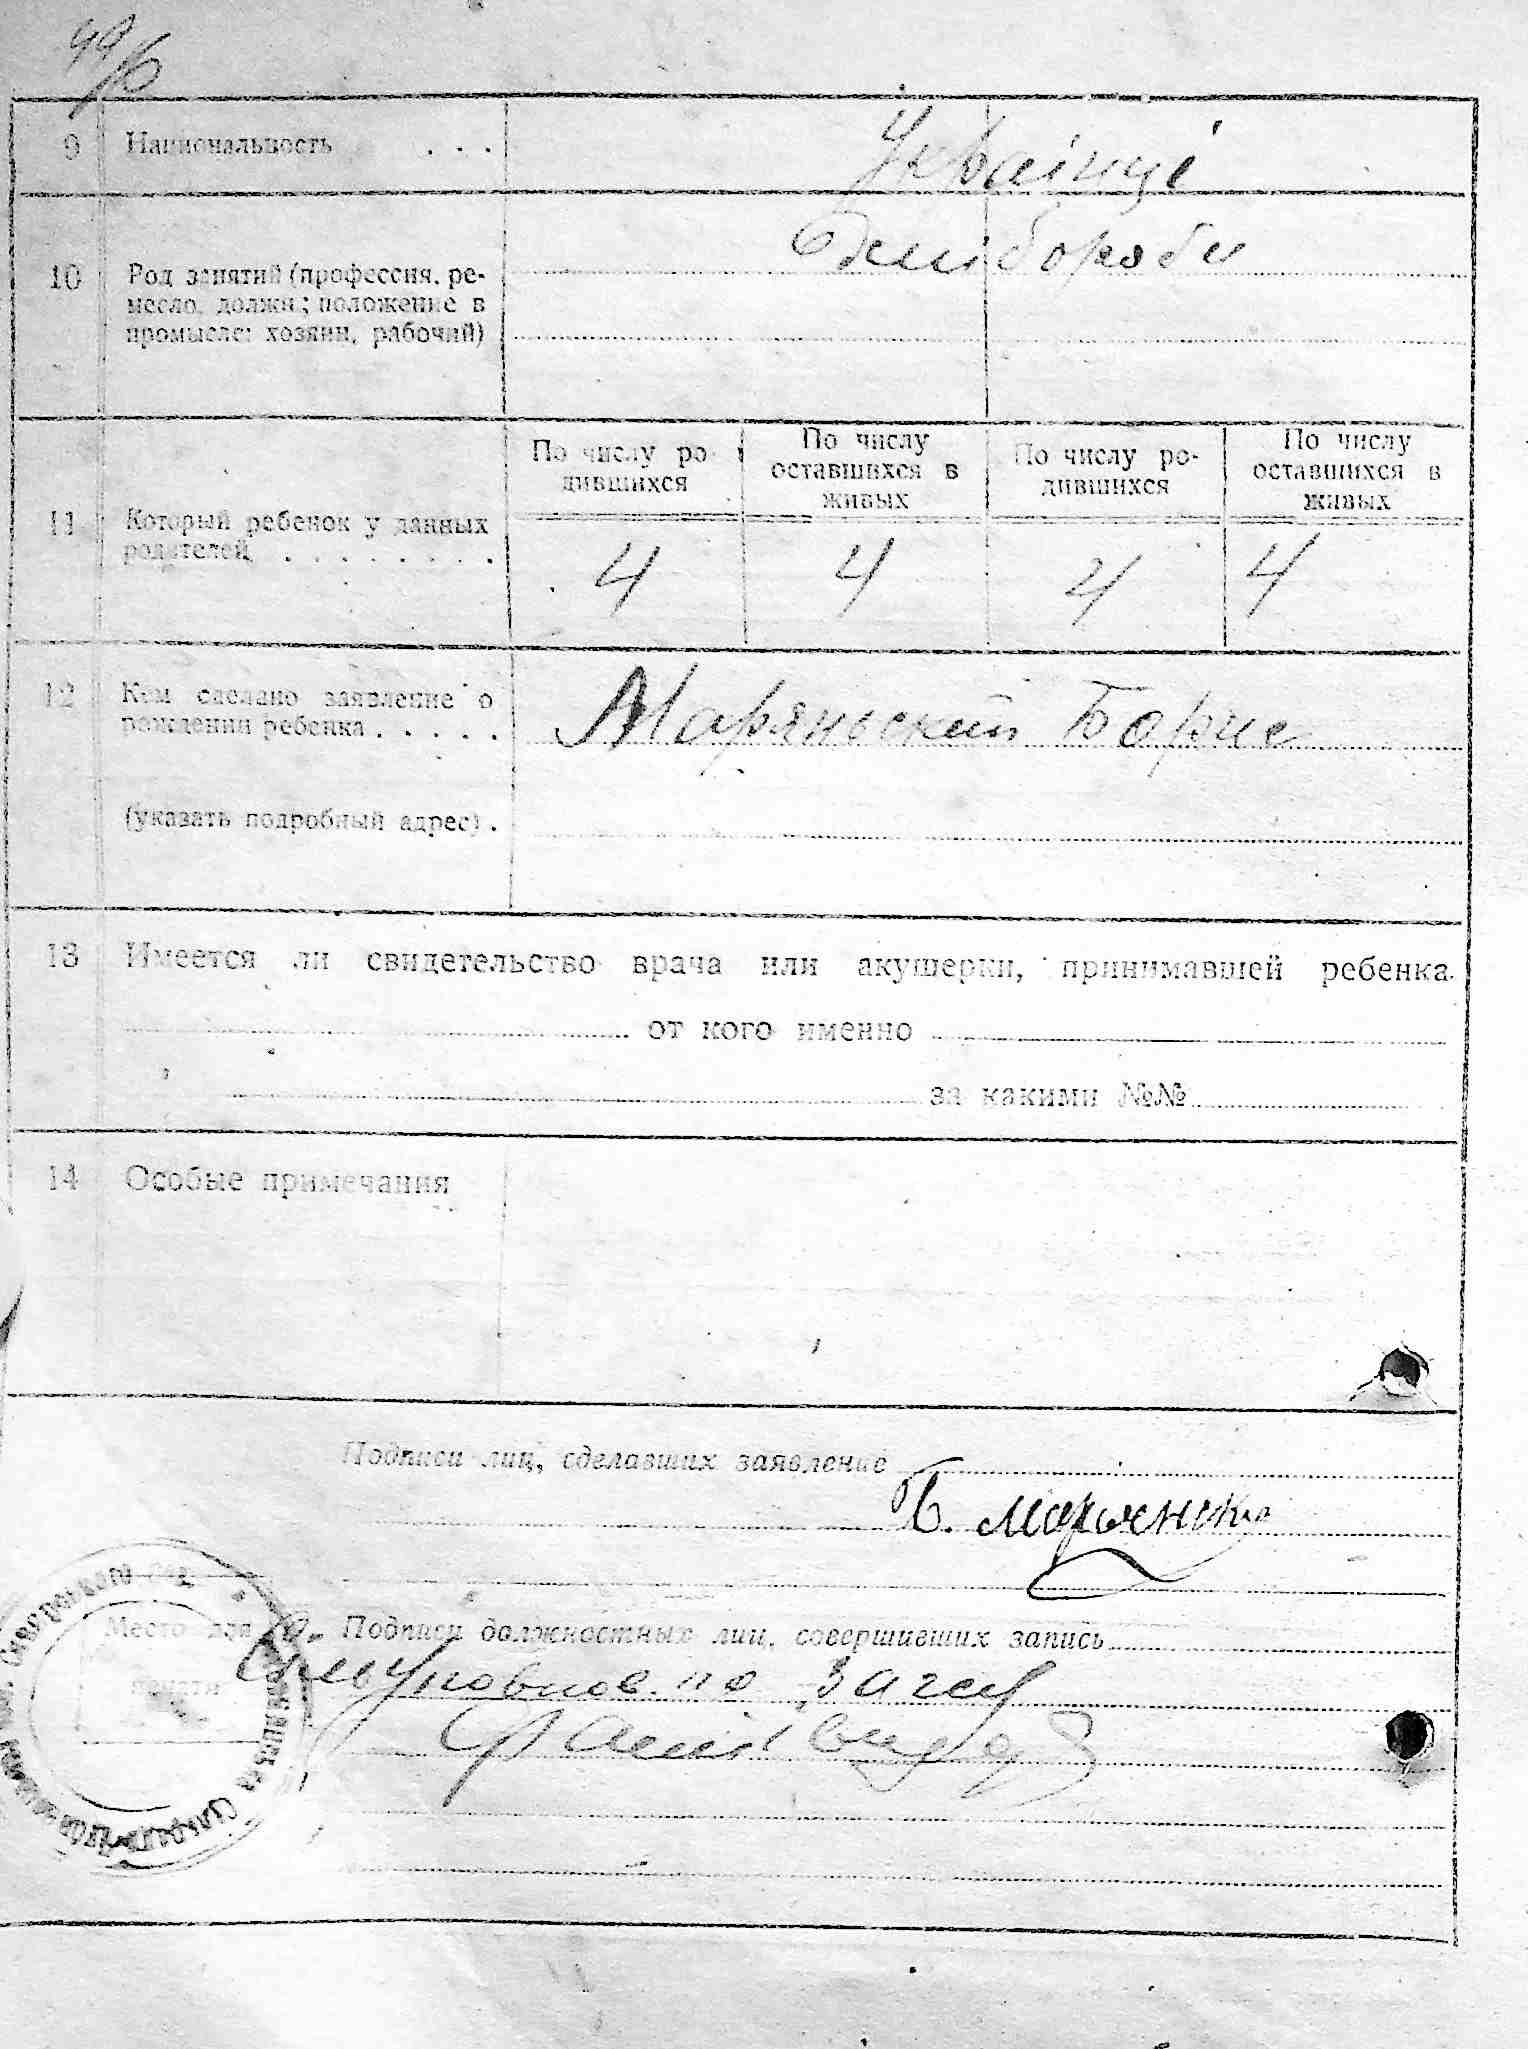 9 Национальность . . .
Українці
10 Род занятий (профессия, ре-
месло, должн; положение в
промысле: хозяин, рабочий)
Хлібороби
11 Который ребенок у данных
родителей . . . . . . . .
По числу ро-
дившихся
По числу
оставшихся в
живых
По числу ро-
дившихся
По числу
оставшихся в
живых
4 4 4 4
12 Кем сделано заявление о
рождении ребенка . . . . .
Маряньский Борис
(указать подробный адрес) .
13 Имеется ли свидетельство врача или акушерки, принимавшей ребенка
от кого именно
за какими №№
14 Особые примечания
Подписи лиц, сделавших заявление
Б.
Место для
печати
Подписи должностных лиц, совершивших запись
по загсу